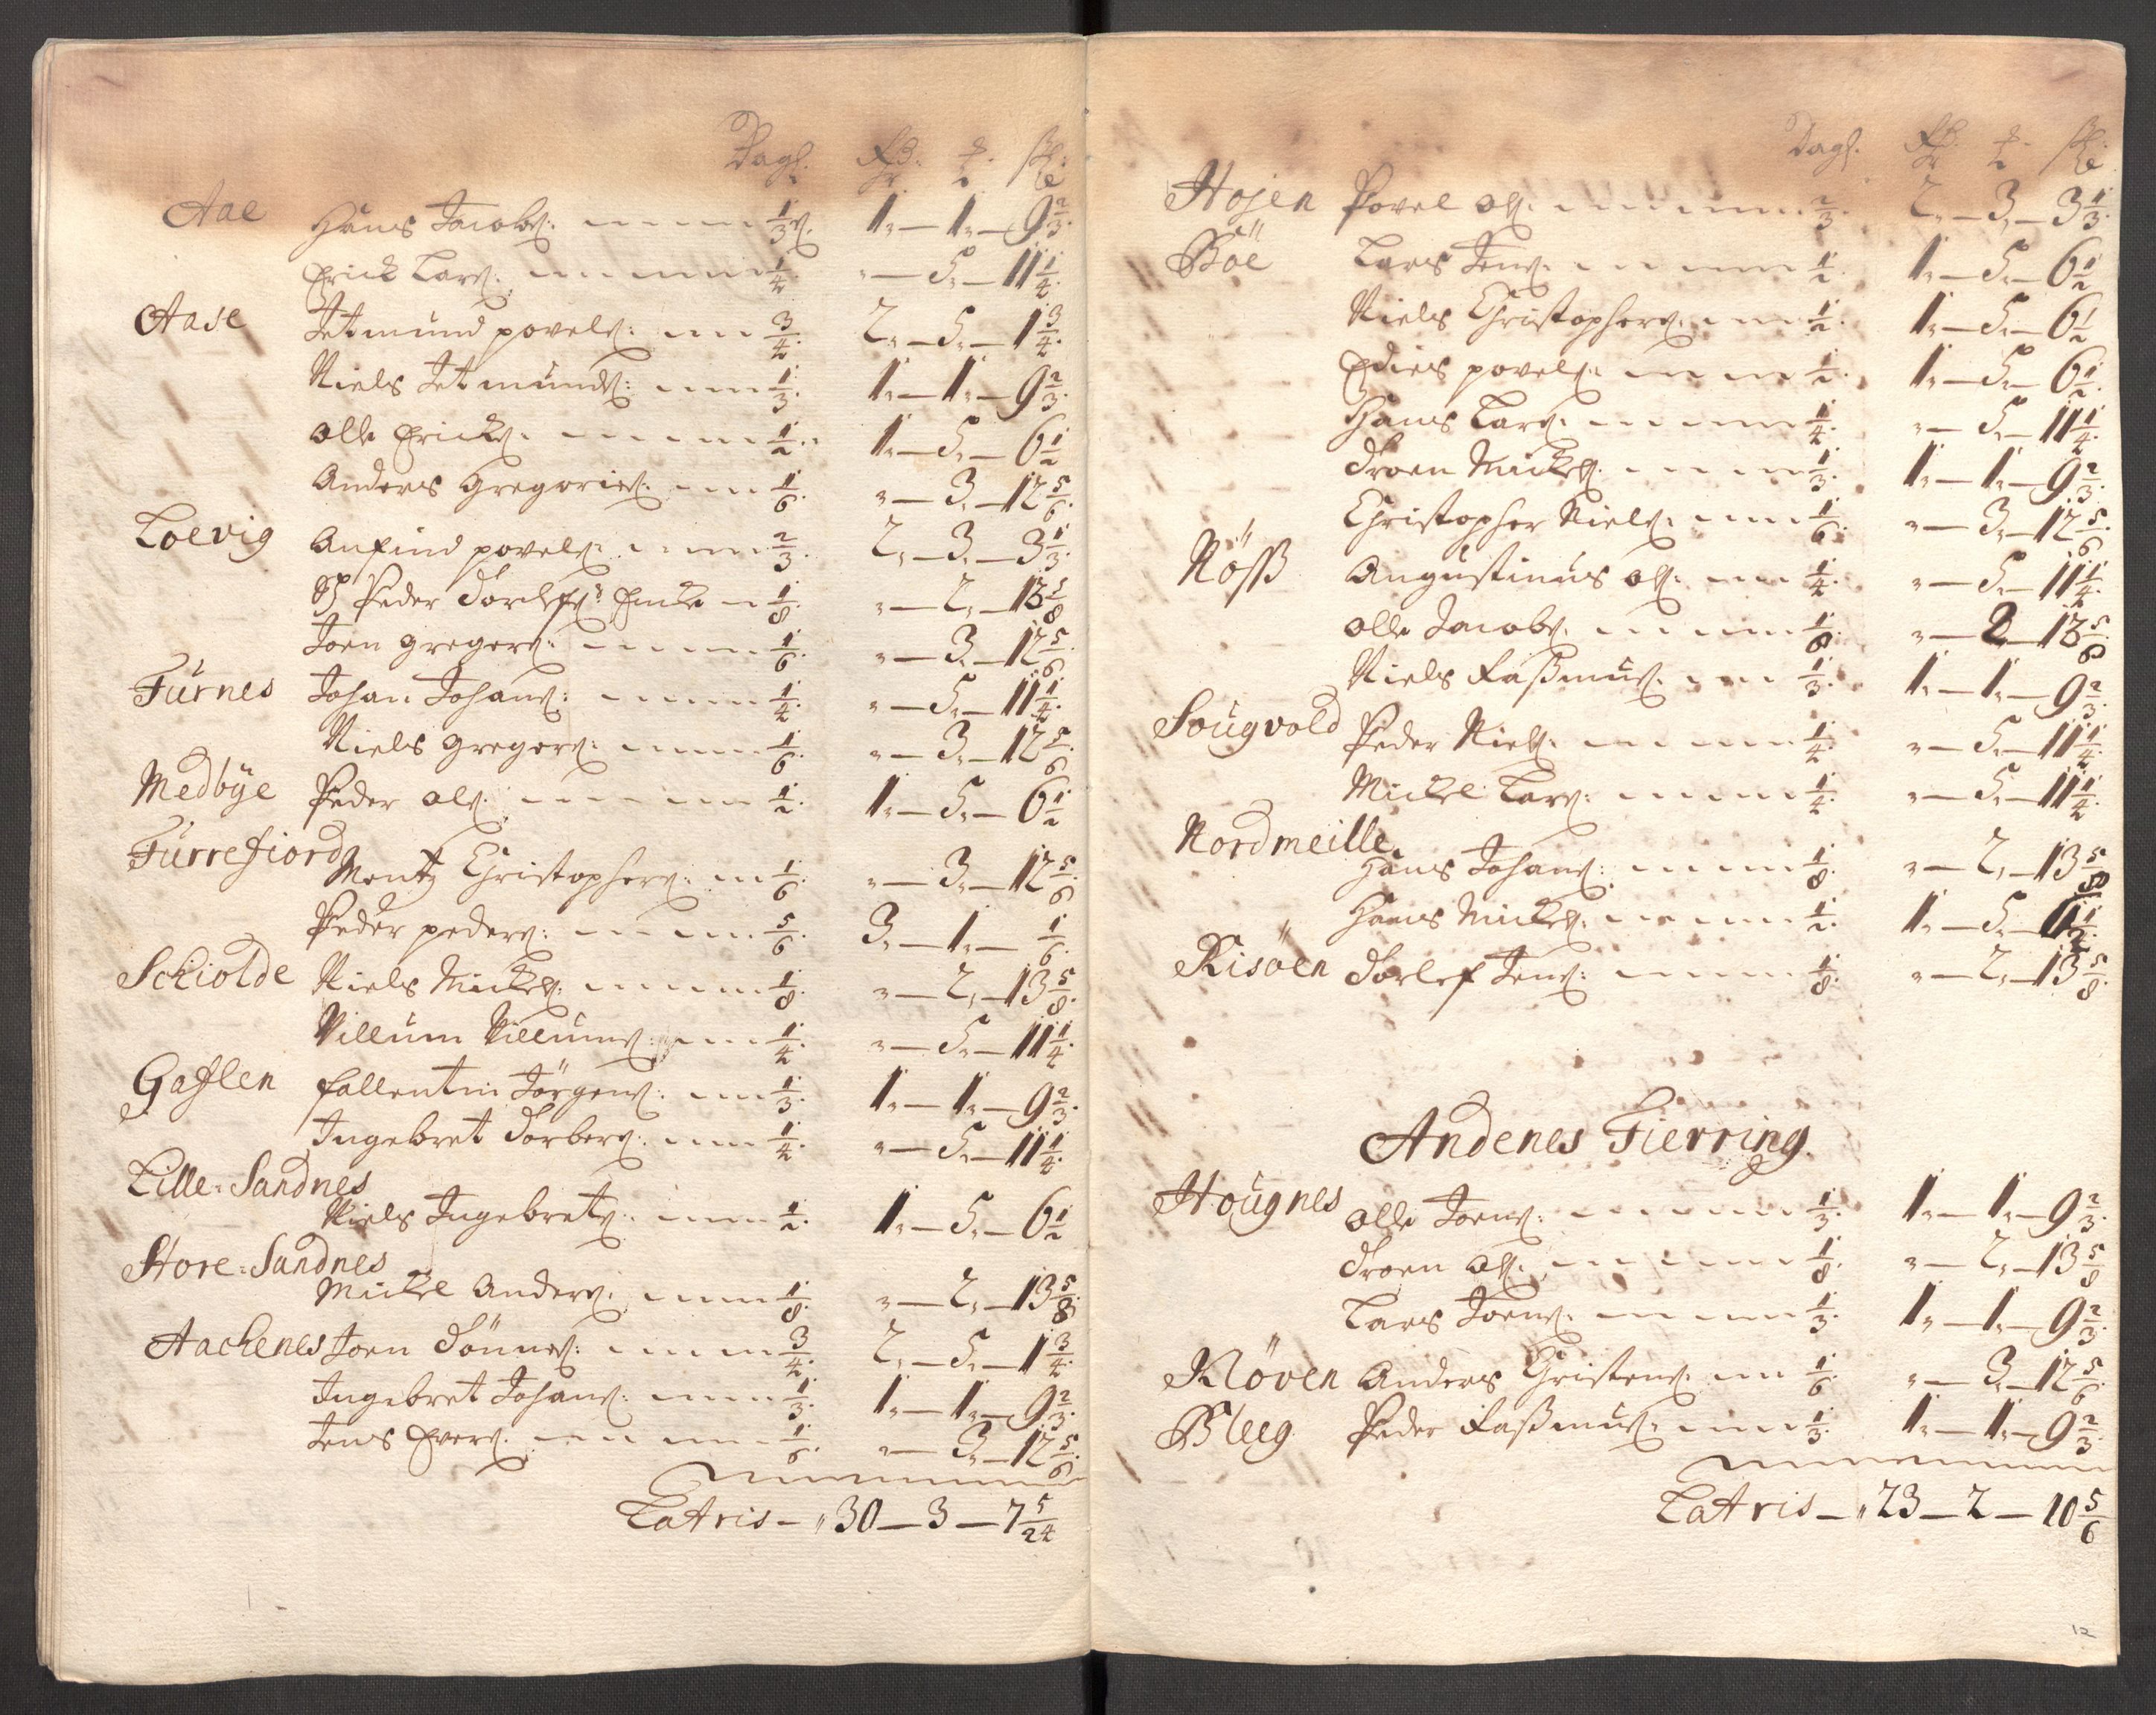 Dagl. Rd: # sk:
Aae Hans Jacobs: 1/3 1 - 1 - 9 2/3
Erick Lars: 1/4 - 5 - 11 1/4
Aase Jetmund povels: 3/4 2 - 5 - 1 3/4
Niels Jetmunds: 1/3 1 - 1 - 9 2/3
Olle Ericks: 1/2 1 - 5 - 6 1/2
Anders Gregories: 1/6 - 3 - 12 5/6
Loevig Anfind povels: 2/3 2 - 3 - 3 1/3
Peder Dorlefs: Encke 1/8 - 2 - 13 5/8
Joen gregers: 1/6 - 3 - 12 5/6
Fürnes Johan Johans: 1/4 - 5 - 11 1/4
Niels gregers: 1/6 - 3 - 12 5/6
Medbÿe Peder Ols: 1/2 1 - 5 - 6 1/2
Fürrefiord
Mentz Christophers: 1/6 - 3 - 12 5/6
Peder peders: 5/6 3 - 1 - 1/6
Schiolde Niels Mickels: 1/8 - 2 - 13 5/8
Villum Villums: 1/4 - 5 - 11 1/4
Gaflen fallentin Jörgens: 1/3 1 - 1 - 9 2/3
Ingebret Dorbers: 1/4 - 5 - 11 1/4
Lille-Sandnes
Niels Ingebrets: 1/2 1 - 5 - 6 1/2
Store-Sandnes
Mickel Anders: 1/8 - 2 - 13 5/8
Aachenes Joen Dönnes: 3/4 2 - 5 - 1 3/4
Ingebret Johans: 1/3 1 - 1 - 9 2/3
Jens Evers: 1/6 - 3 - 12 5/6
LatAris - 30 - 3 - 7 5/24
Dagl. Rd: # sk:
Hojen Povel Ols: 2/3 2 - 3 - 3 1/3
Böe Lars Jens: 1/2 1 - 5 - 6 1/2
Niels Christophers: 1/2 1 - 5 - 6 1/2
Edies povels: 1/2 1 - 5 - 6 1/2
Hans Lars: 1/4 - 5 - 11 1/4
Droen Mickels: 1/3 1 - 1 - 9 2/3
Christopher Niels: 1/6 - 3 - 12 5/6
Nöss Augustinus Ols: 1/4 - 5 - 11 1/4
Olle Jacobs: 1/8 - 2 - 13 5/8
Niels Rassmus: 1/3 1 - 1 - 9 2/3
Sougvold Peder Niels: 1/4 - 5 - 11 1/4
Mickel Lars: 1/4 - 5 - 11 1/4
Nordmeille
Hans Johans: 1/8 - 2 - 13 5/8
Hans Mickels: 1/2 1 - 5 - 6 1/2
Risöen Dorlef Jens: 1/8 - 2 - 13 5/8
Andenes Fierring
Hougnes Olle Joens: 1/3 1 - 1 - 9 2/3
Droen Ols: 1/8 - 2 - 13 5/8
Lars Joens: 1/3 1 - 1 - 9 2/3
Kløven Anders Christens: 1/6 - 3 - 12 5/6
Bleeg Peder Rassmus: 1/3 1 - 1 - 9 2/3
LatAris - 23 - 2 - 10 5/6
12